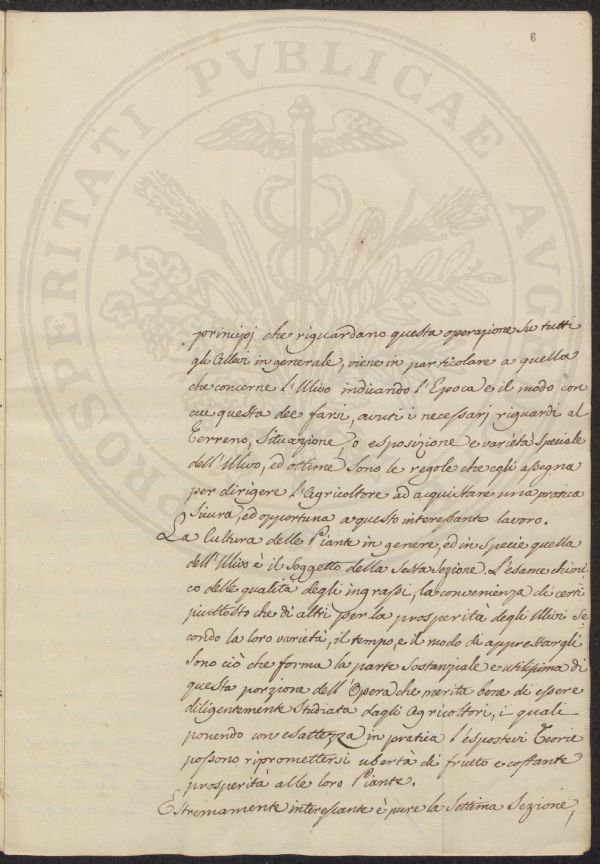 6
PROSPERITATI PVBLICAE AVGE
principj che riguardano questa operazione su tutti
gli Alberi in generale, viene in particolare a quella
che concerne l'Ulivo indicando l'Epoca e il modo con
cui questa dee farsi, avuti i necessarj riguardi al
Terreno, Situazione, o esposizione e varietà speciale
dell'Ulivo, ed ottime sono le regole che egli assegna
per dirigere l'Agricoltore ad acquistare una pratica
sicura, ed opportuna a questo interessante lavoro.
La Cultura delle Piante in genere, ed in specie quella
dell'Ulivo è il soggetto della Sesta Sezione. L'esame chimi
co delle qualità degli ingrassi, la convenienza di certi
piuttosto che di altri per la prosperità degli Ulivi Se
condo la loro varietà, il tempo, e il modo di apprestargli
sono ciò che forma la parte sostanziale e utilissima di
questa porzione dell'Opera che merita bene di essere
diligentemente studiata dagli Agricoltori, i quali
ponendo con esattezza in pratica l'espostevi Teorie
possono ripromettersi ubertà di frutto e costante
prosperità alle loro Piante.
Estremamente interessante è pure la Settima Sezione,